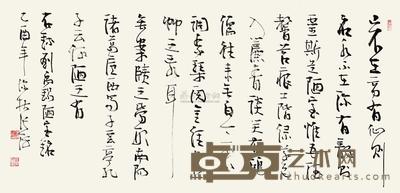 山不在高有仙则
名水不在深有龙则
灵斯是陋室惟吾德
馨苔痕上阶绿草色
入帘青谈笑有鸿
儒往来无白丁可以
调素琴阅金经无丝
竹之乱耳
无案牍之劳形南阳
诸葛庐西蜀子云亭孔
子云何陋之有
右录刘禹锡陋室铭
乙酉年